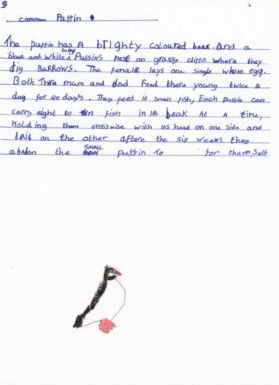 common Puffin
The puffin has A brightly coloured beak And a
blue and white body Puffins nest on grassy cliffs where they
dig BuRRows. The female lays one single white egg.
Both Their mum and dad Feed there young twice a
day for 40 days. They feed it small fish, Each puffin can
carry eight to ten fish in its beak At a time,
Holding them crosswise with its head on one side and
tail on the other after the six weeks they
abandon the small puffin To for themself